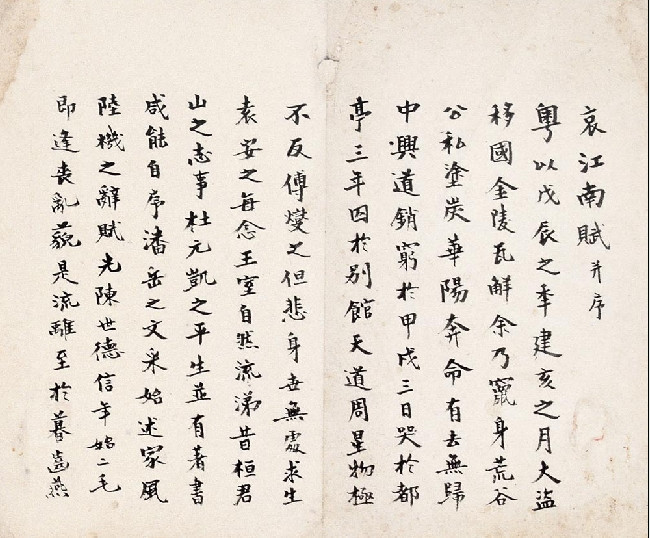 哀江南賦 并序
粤以戊辰之年建亥之月大盜
移國金陵瓦解余乃竄身荒谷
公私塗炭華陽奔命有去無歸
中興道銷窮於甲戌三日哭於都
亭三年囚於別館天道周星物極
不反傅燮之但悲身世無處求生
袁安之每念王室自然流涕昔桓君
山之志事杜元凱之平生並有著書
咸能自序潘岳之文采始述家風
陸機之辭賦先陳世德信年始二毛
即逢喪亂藐是流離至於暮齒燕